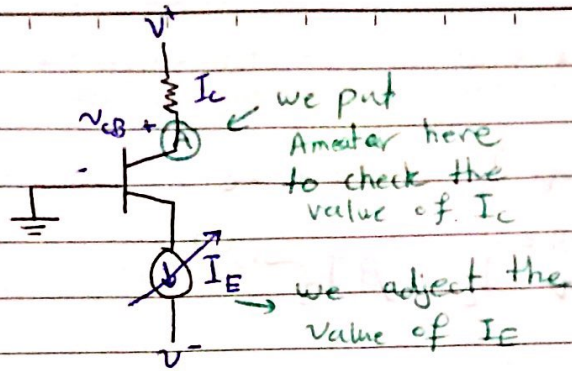 V+
Ic
we put
VCB +
A
Ameater here
to check the
value of Ic
-
IE
we adject the
value of IE
V-